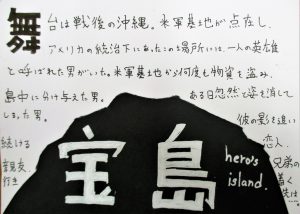 舞台は戦後の沖縄。米軍基地が点在し、
アメリカの統治下にあったこの場所には、一人の英雄
と呼ばれた男がいた。米軍基地から何度も物資を盗み、
島中に分け与えた男。
ある日忽然と姿を消して
しまった男。
彼の影を追い
続ける
恋人、
親友、
兄弟の
行き
着く
先は
宝島
hero's
island.